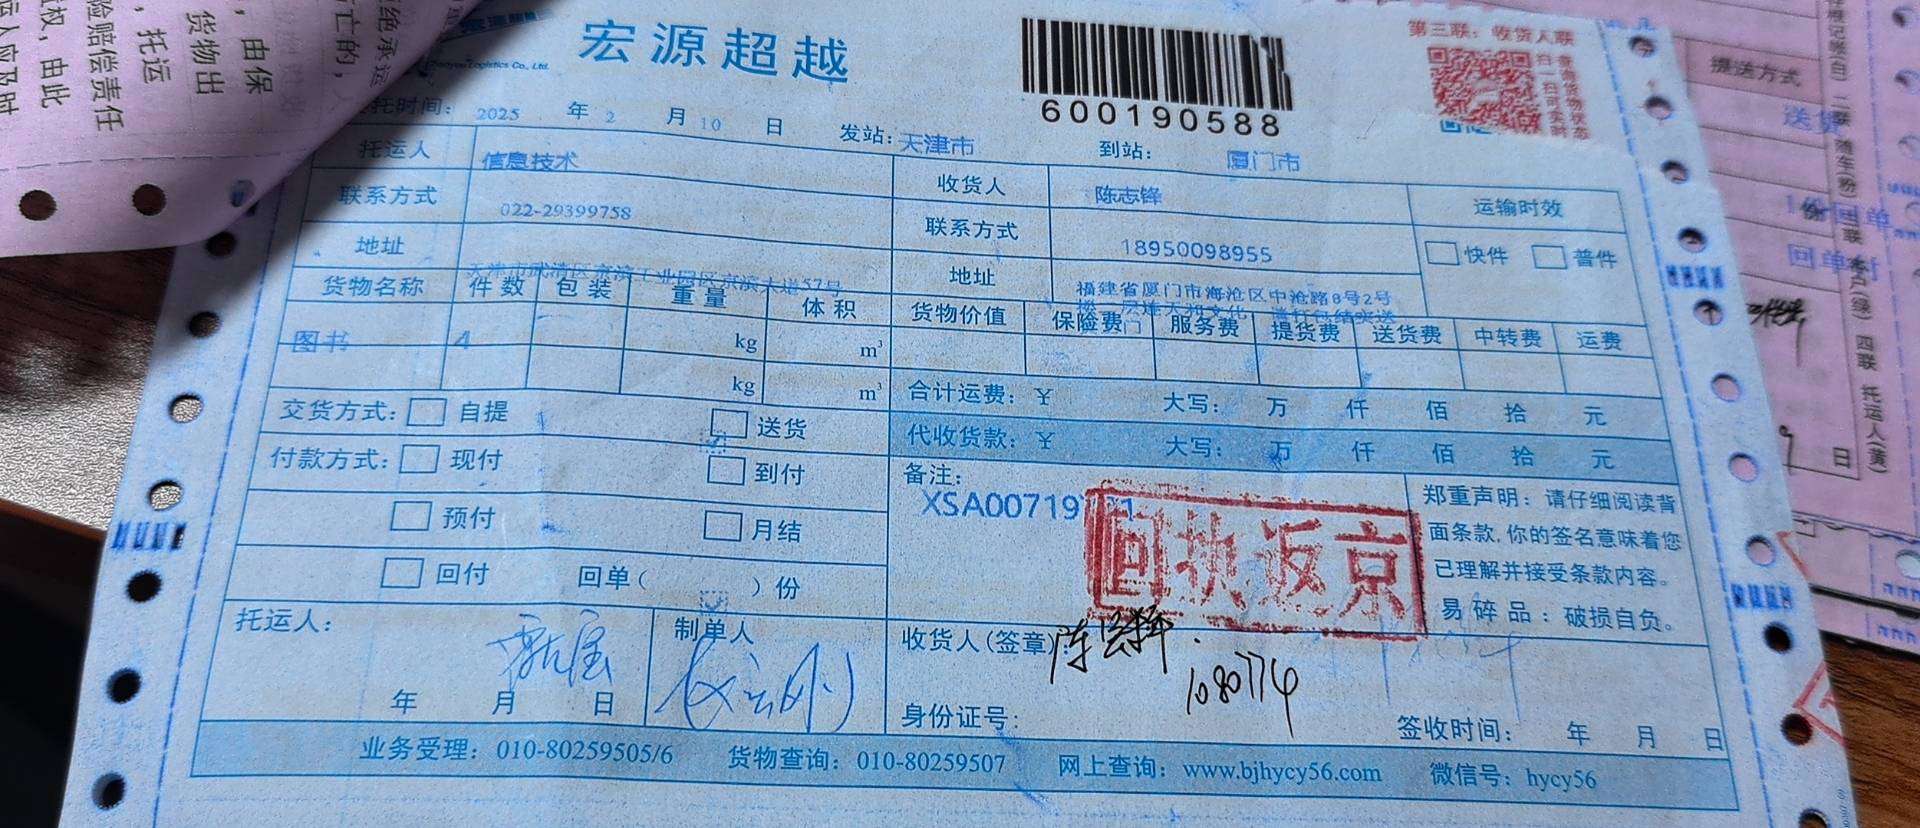 宏源超越
600190588
第三联：收货人联
查询货物状态
扫一扫可实时
Logistics Co., Ltd.
托时间： 2025 年 2 月 10 日 发站： 天津市 到站： 厦门市
托运人 信息技术
收货人 陈志锋
运输时效
联系方式 022-29399758
联系方式 18950098955
快件 普件
地址 天津市武清区京滨工业园区京滨大道57号
地址 福建省厦门市海沧区中沧路8号2号
货物名称 件数 包装 重量 体积 货物价值 保险费 服务费 提货费 送货费 中转费 运费
图书 4 kg m³
kg m³
合计运费：￥ 大写： 万 仟 佰 拾 元
交货方式： 自提 送货
代收货款：￥ 大写： 万 仟 佰 拾 元
付款方式： 现付 到付
预付 月结
回付 回单（ ）份
备注：
XSA00719
回执返京
郑重声明：请仔细阅读背
面条款,你的签名意味着您
已理解并接受条款内容。
易碎品：破损自负。
托运人：
年 月 日
制单人
收货人(签章)：
1080774
身份证号：
签收时间： 年 月 日
业务受理：010-80259505/6 货物查询：010-80259507 网上查询：www.bjhycy56.com 微信号：hycy56
由保
货物出
托运
险赔偿责任
权，由此
提送方式
送货
回单
日